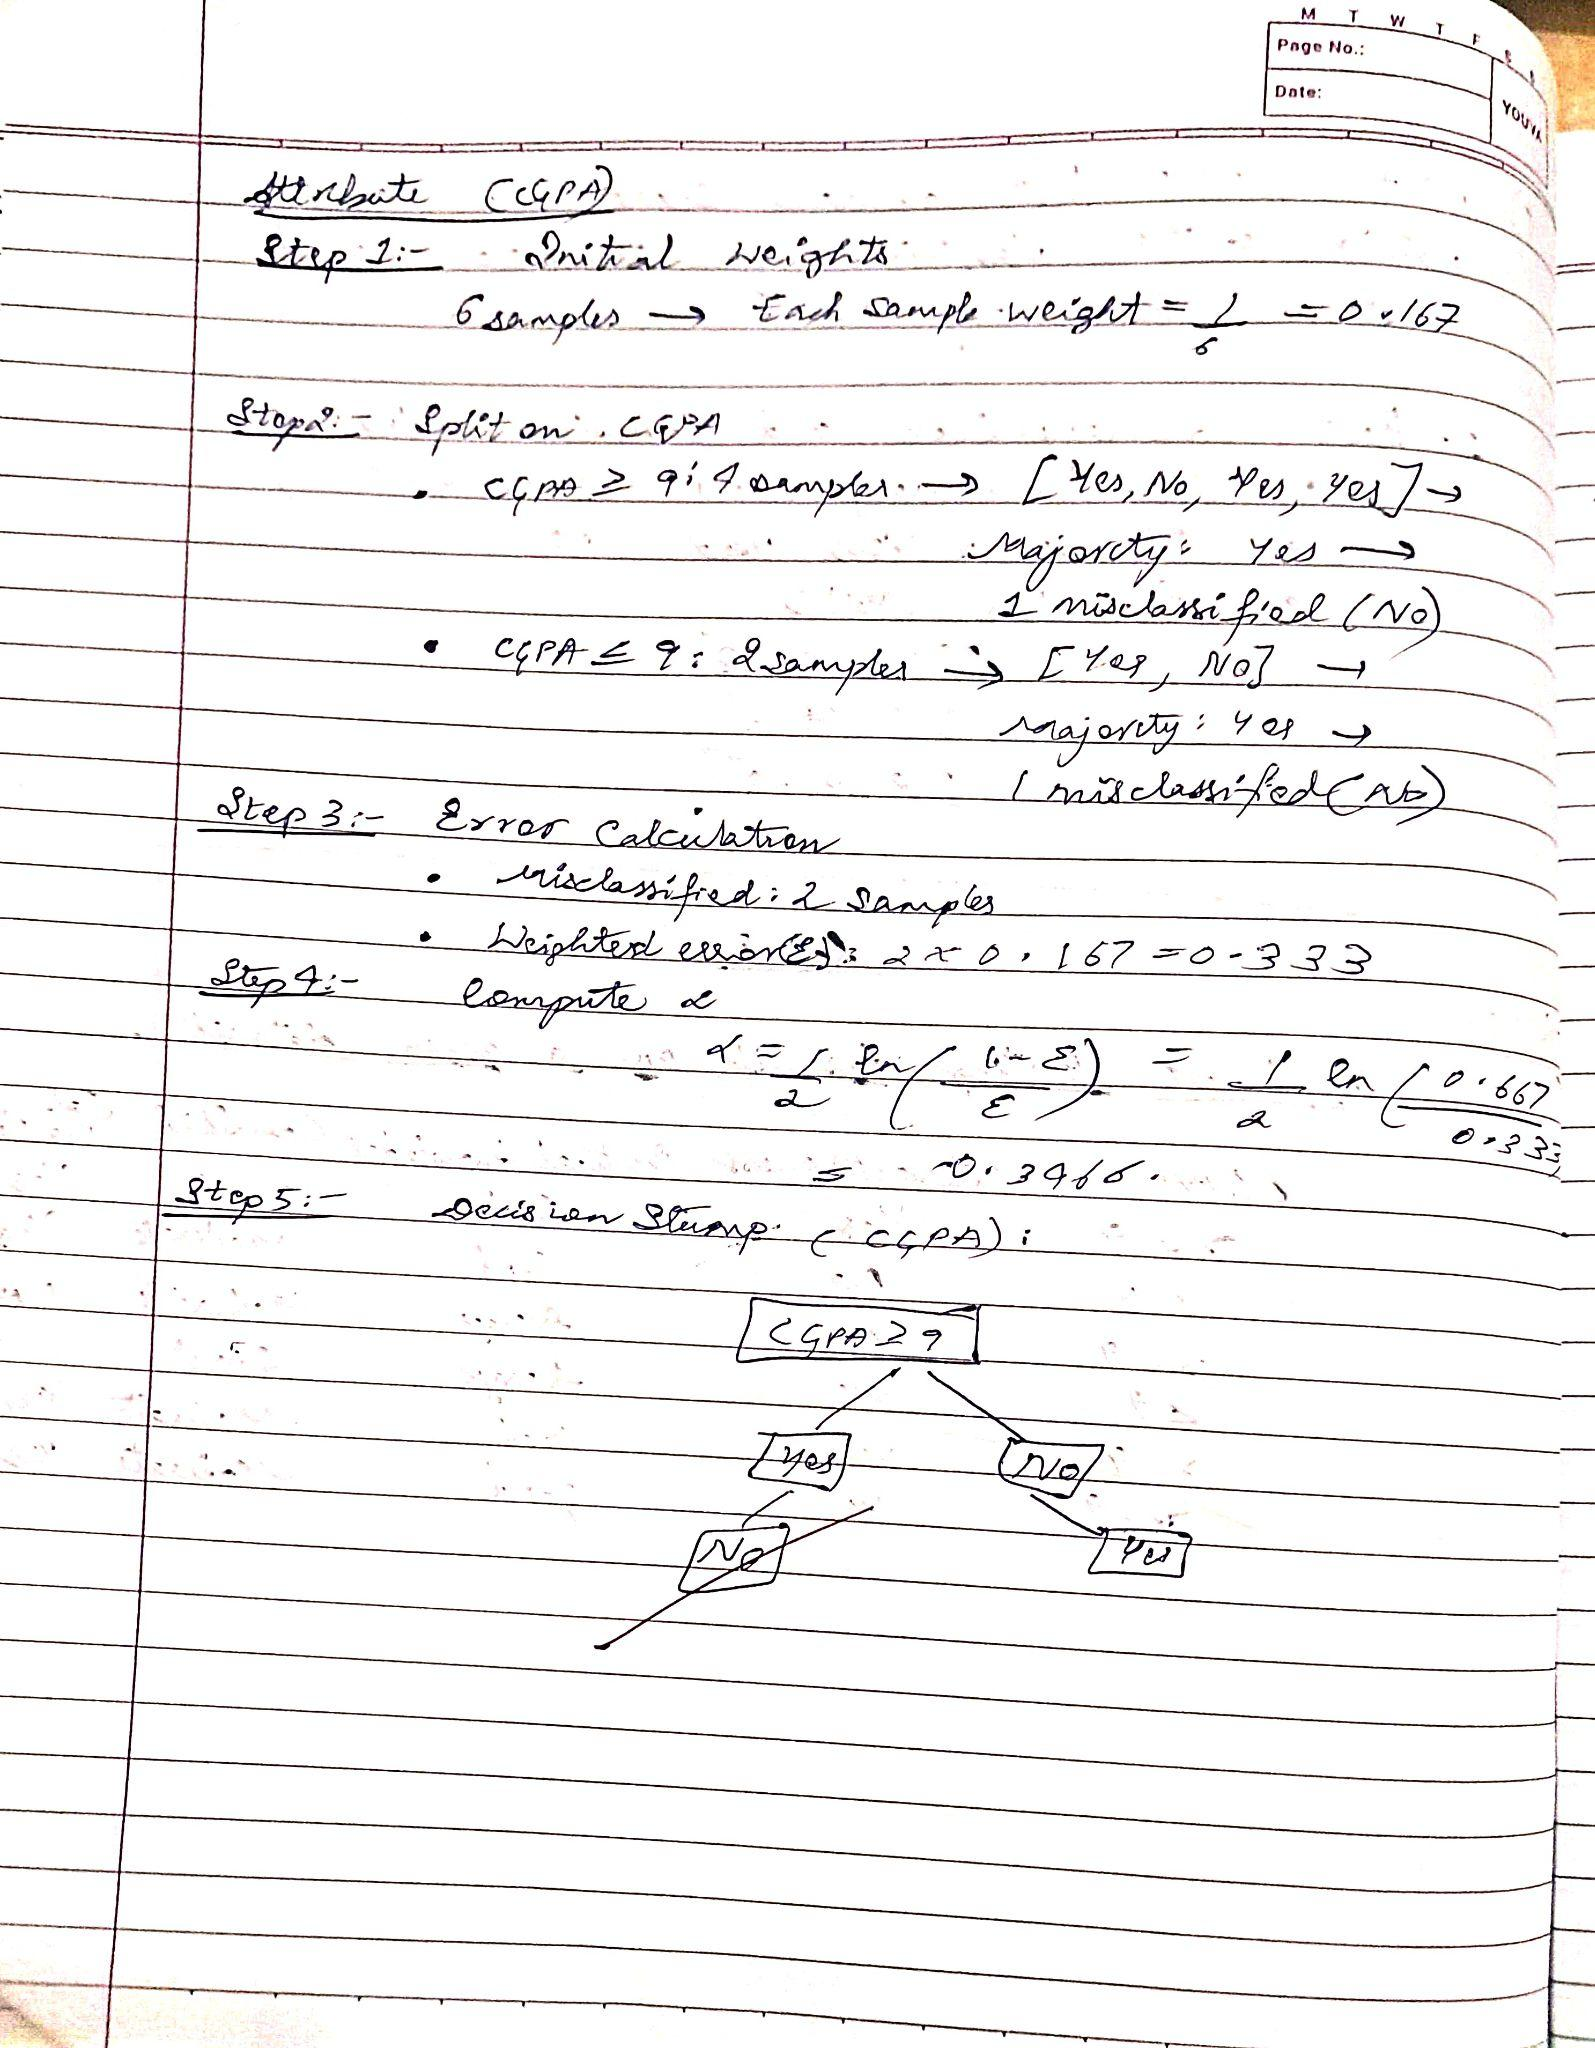 M T W T F S S
Page No.:
Date:
YOUVA
Attribute (CGPA)
Step 1:- Initial weights
6 samples → Each sample weight = 1/6 = 0.167
Step 2:- Split on CGPA
• CGPA ≥ 9: 4 samples → [Yes, No, Yes, Yes] →
Majority: Yes →
1 misclassified (No)
• CGPA ≤ 9: 2 samples → [Yes, No] →
Majority: Yes →
1 misclassified (No)
Step 3:- Error Calculation
• Misclassified: 2 Samples
• Weighted error(ε): 2 × 0.167 = 0.333
Step 4:- Compute α
α = 1/2 ln (1-ε/ε) = 1/2 ln (0.667/0.333
= 0.3466.
Step 5:- Decision Stump (CGPA):
CGPA ≥ 9
Yes No
No Yes